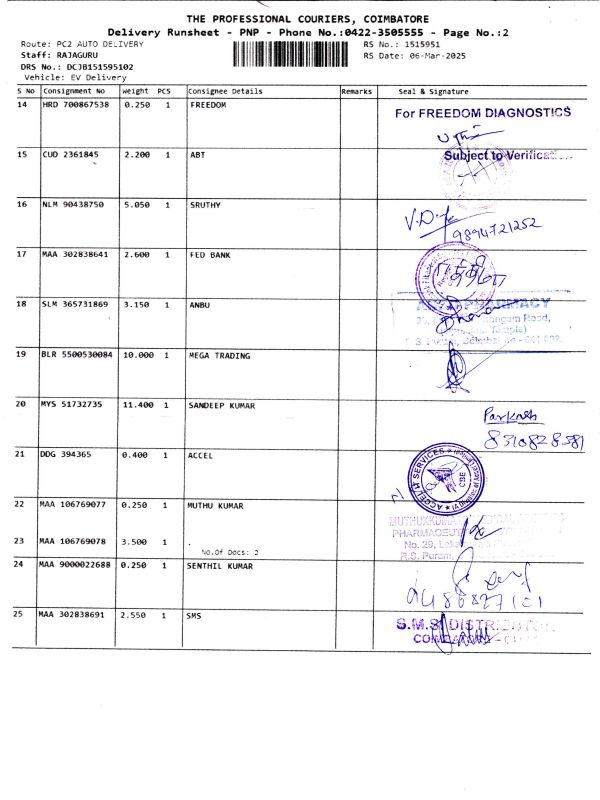 THE PROFESSIONAL COURIERS, COIMBATORE
Delivery Runsheet - PNP - Phone No.:0422-3505555 - Page No.:2
Route: PC2 AUTO DELIVERY
RS No.: 1515951
Staff: RAJAGURU
RS Date: 06-Mar-2025
DRS No.: DCJB151595102
Vehicle: EV Delivery
S No Consignment No Weight PCS Consignee Details Remarks Seal & Signature
14 HRD 700867538 0.250 1 FREEDOM
For FREEDOM DIAGNOSTICS
15 CUD 2361845 2.200 1 ABT
Subject to Verification
16 NLM 90438750 5.050 1 SRUTHY
9894721252
17 MAA 302838641 2.600 1 FED BANK
18 SLM 365731869 3.150 1 ANBU
PHARMACY
Road,
19 BLR 5500530084 10.000 1 MEGA TRADING
20 MYS 51732735 11.400 1 SANDEEP KUMAR
Parkash
8310828581
21 DDG 394365 0.400 1 ACCEL
22 MAA 106769077 0.250 1 MUTHU KUMAR
MUTHUKKUMA
PHARMACEUT
23 MAA 106769078 3.500 1 .
No.Of Docs: 2
No. 29,
R.S. Puram,
24 MAA 9000022688 0.250 1 SENTHIL KUMAR
9486827101
25 MAA 302838691 2.550 1 SMS
S.M.S. DISTRIBUTOR